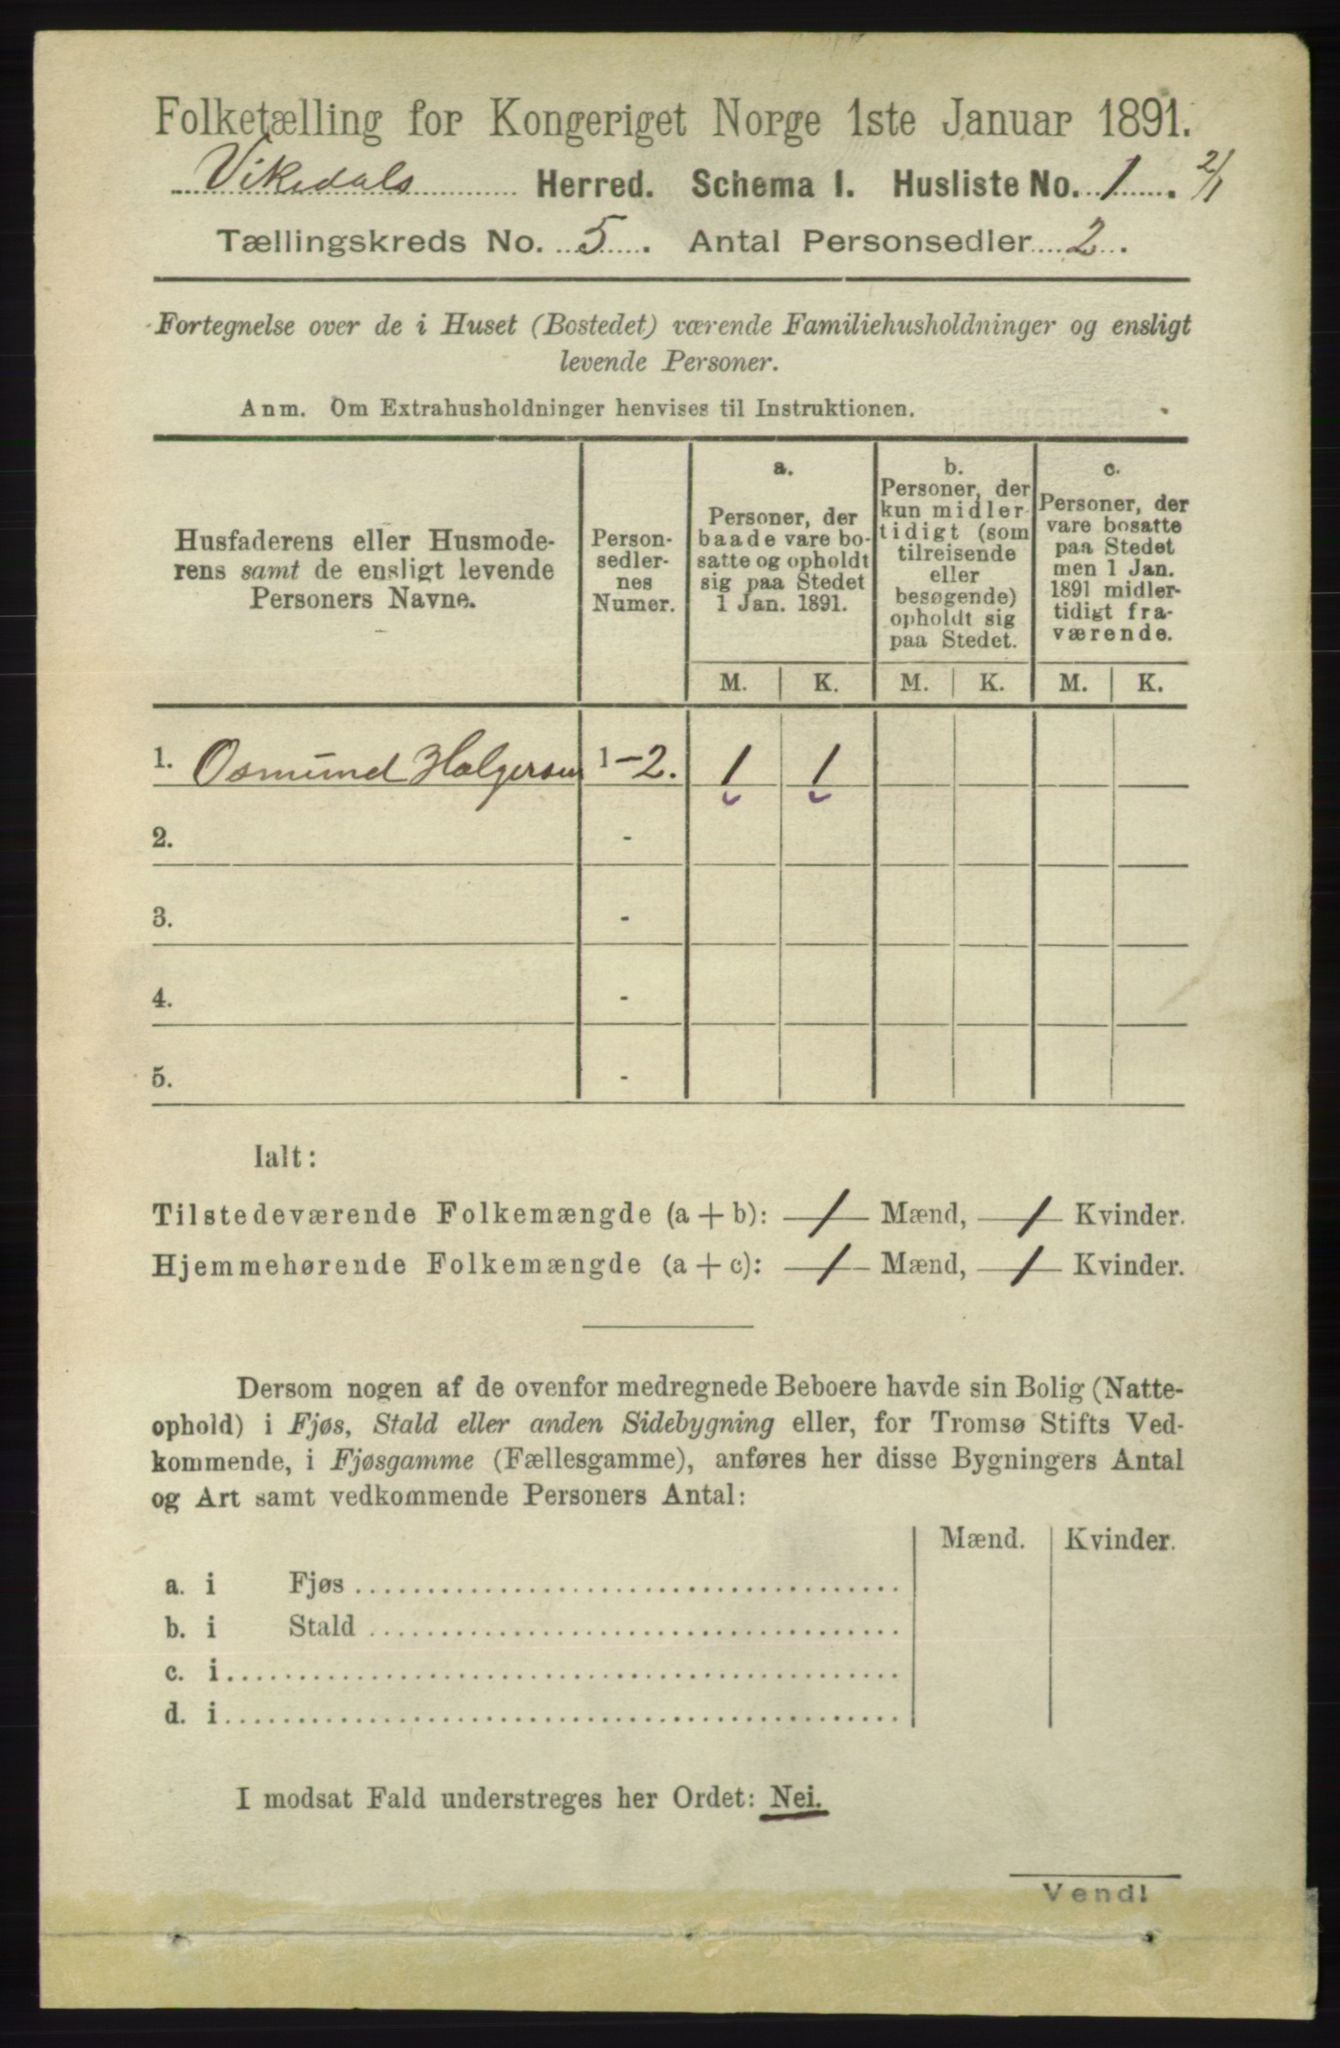 Folketælling for Kongeriget Norge 1ste Januar 1891.
Vikedals Herred. Schema I. Husliste No. 1. 2/1
Tællingskreds No. 5. Antal Personsedler 2.
Fortegnelse over de i Huset (Bostedet) værende Familiehusholdninger og ensligt
levende Personer.
Anm. Om Extrahusholdninger henvises til Instruktionen.
Husfaderens eller Husmode-
rens samt de ensligt levende
Personers Navne.
Person-
sedler-
nes
Numer.
a.
Personer, der
baade vare bo-
satte og opholdt
sig paa Stedet
1 Jan. 1891.
b.
Personer, der
kun midler-
tidigt (som
tilreisende
eller
besøgende)
opholdt sig
paa Stedet.
c.
Personer, der
vare bosatte
paa Stedet
men 1 Jan.
1891 midler-
tidigt fra-
værende.
M. K. M. K. M. K.
1. Osmund Holgersen 1-2. 1 1
2. -
3. -
4. -
5. -
Ialt:
Tilstedeværende Folkemængde (a + b): 1 Mænd, 1 Kvinder.
Hjemmehørende Folkemængde (a + c): 1 Mænd, 1 Kvinder.
Dersom nogen af de ovenfor medregnede Beboere havde sin Bolig (Natte-
ophold) i Fjøs, Stald eller anden Sidebygning eller, for Tromsø Stifts Ved-
kommende, i Fjøsgamme (Fællesgamme), anføres her disse Bygningers Antal
og Art samt vedkommende Personers Antal:
Mænd. Kvinder.
a. i Fjøs
b. i Stald
c. i
d. i
I modsat Fald understreges her Ordet: Nei.
Vend!